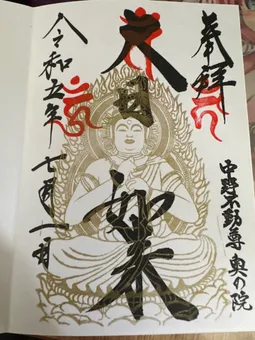 奉拝
大日如来
中野不動尊 奥の院
令和五年 七月一日